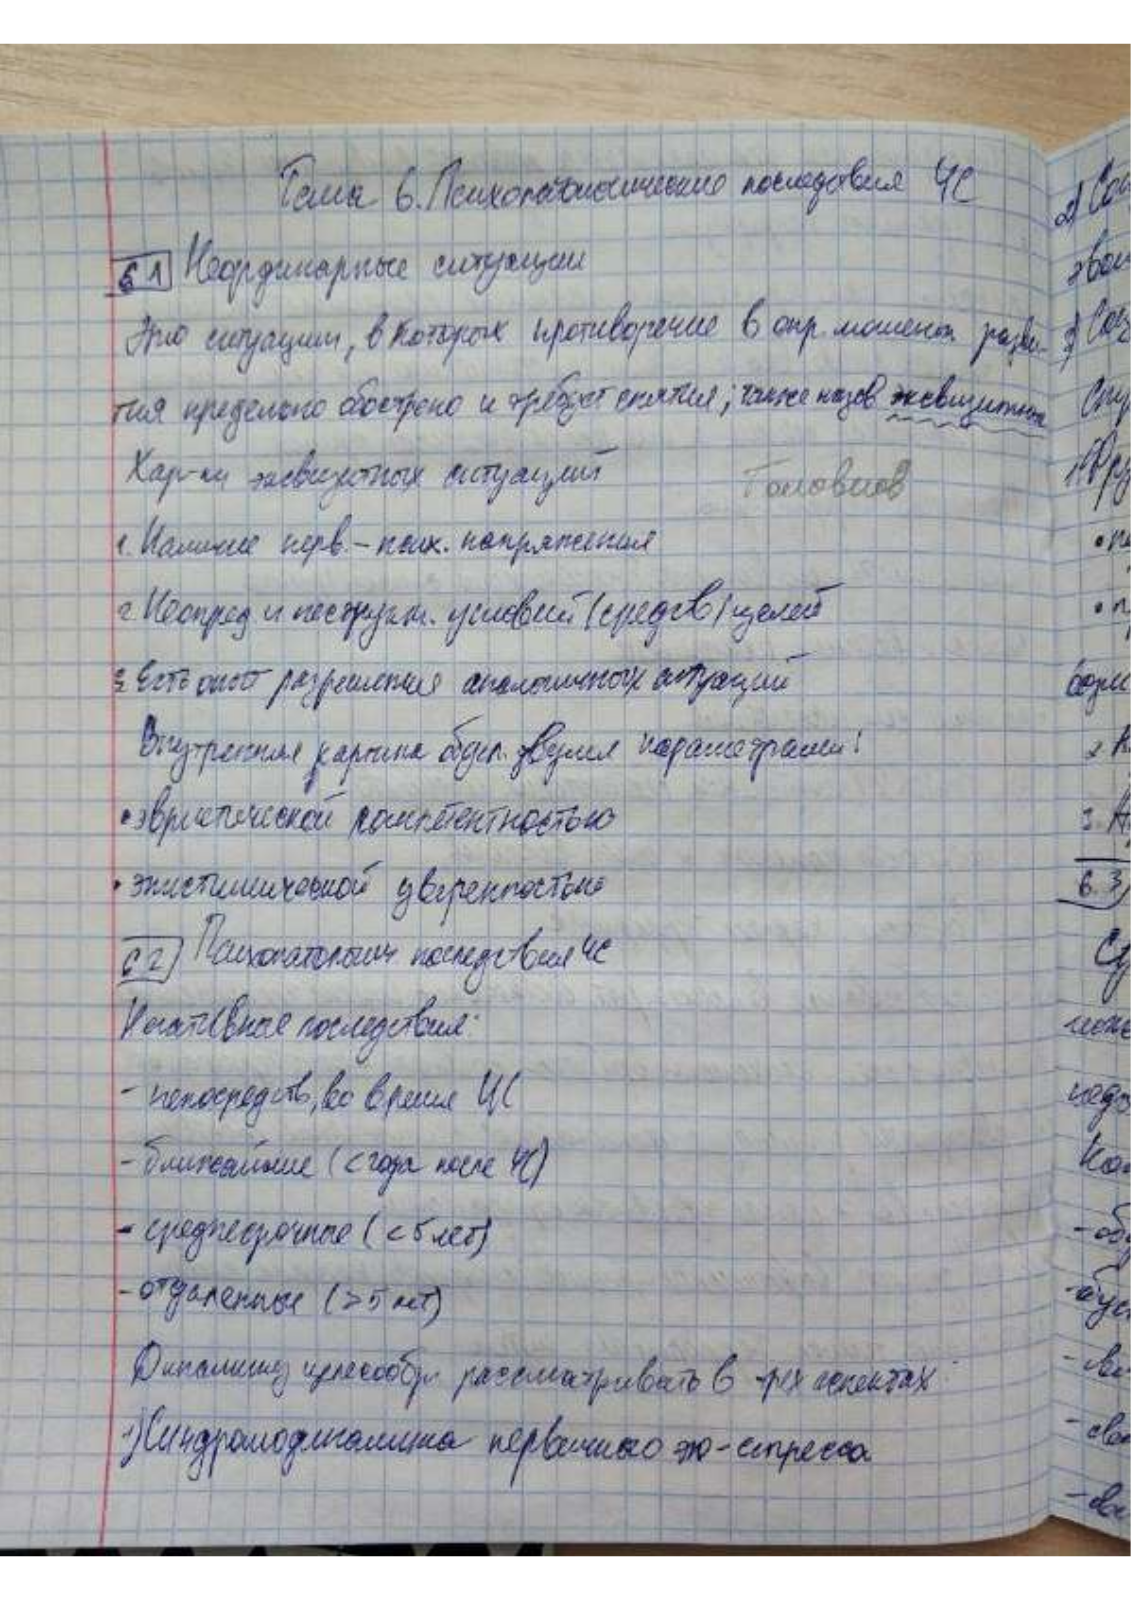 Тема 6. Психопатологические последствия ЧС
6.1 Неординарные ситуации
Это ситуации, в которых противоречие в опр. моменты разви-
тия предельно обострено и требует снятия; также назыв экзвизитные
Хар-ки экзвизитных ситуаций
Головнов
1. Наличие нерв.-псих. напряжения
2. Неопред и неструкт. условий (средств) целей
3. Есть опыт разрешения аналогичных ситуаций
Внутренняя картина двумя параметрами:
• эвристической компетентностью
• уверенностью
6.2 Психопатологич последствия ЧС
Негативные последствия:
- непосредств, во время ЧС
- ближайшие (< года после ЧС)
- среднесрочные (< 5 лет)
- отдаленные (> 5 лет)
Динамику целесообр. рассматривать в трех аспектах:
1) Синдромодинамика первичного стресса
6.3